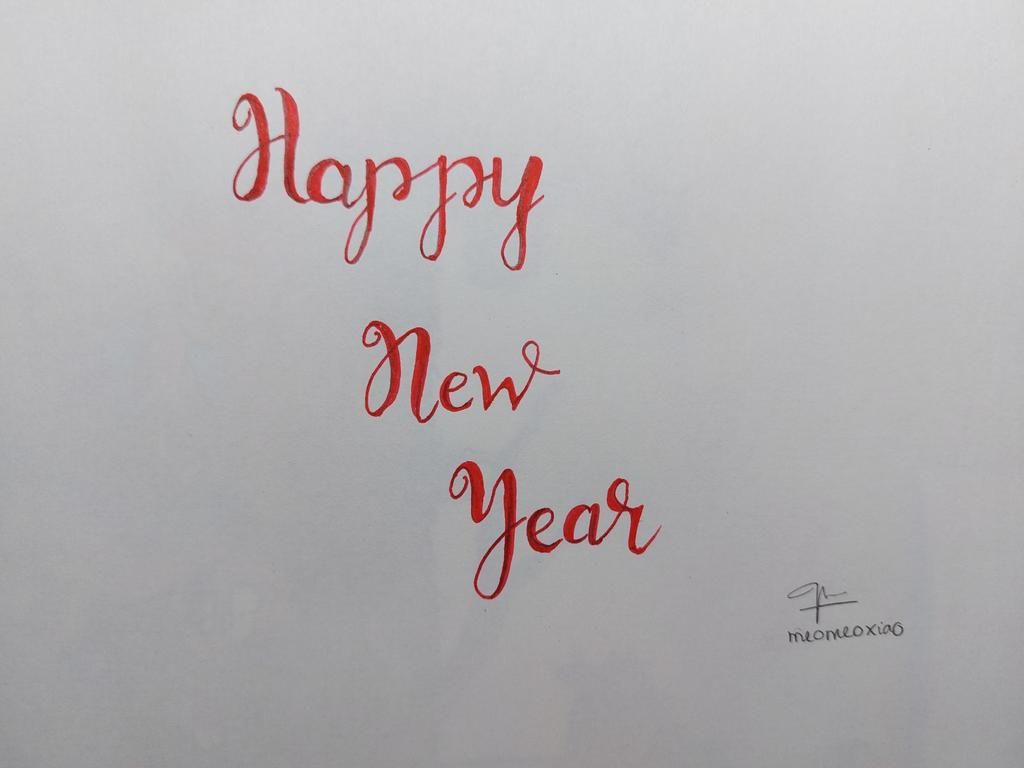 Happy
New
Year
meomeoxiao